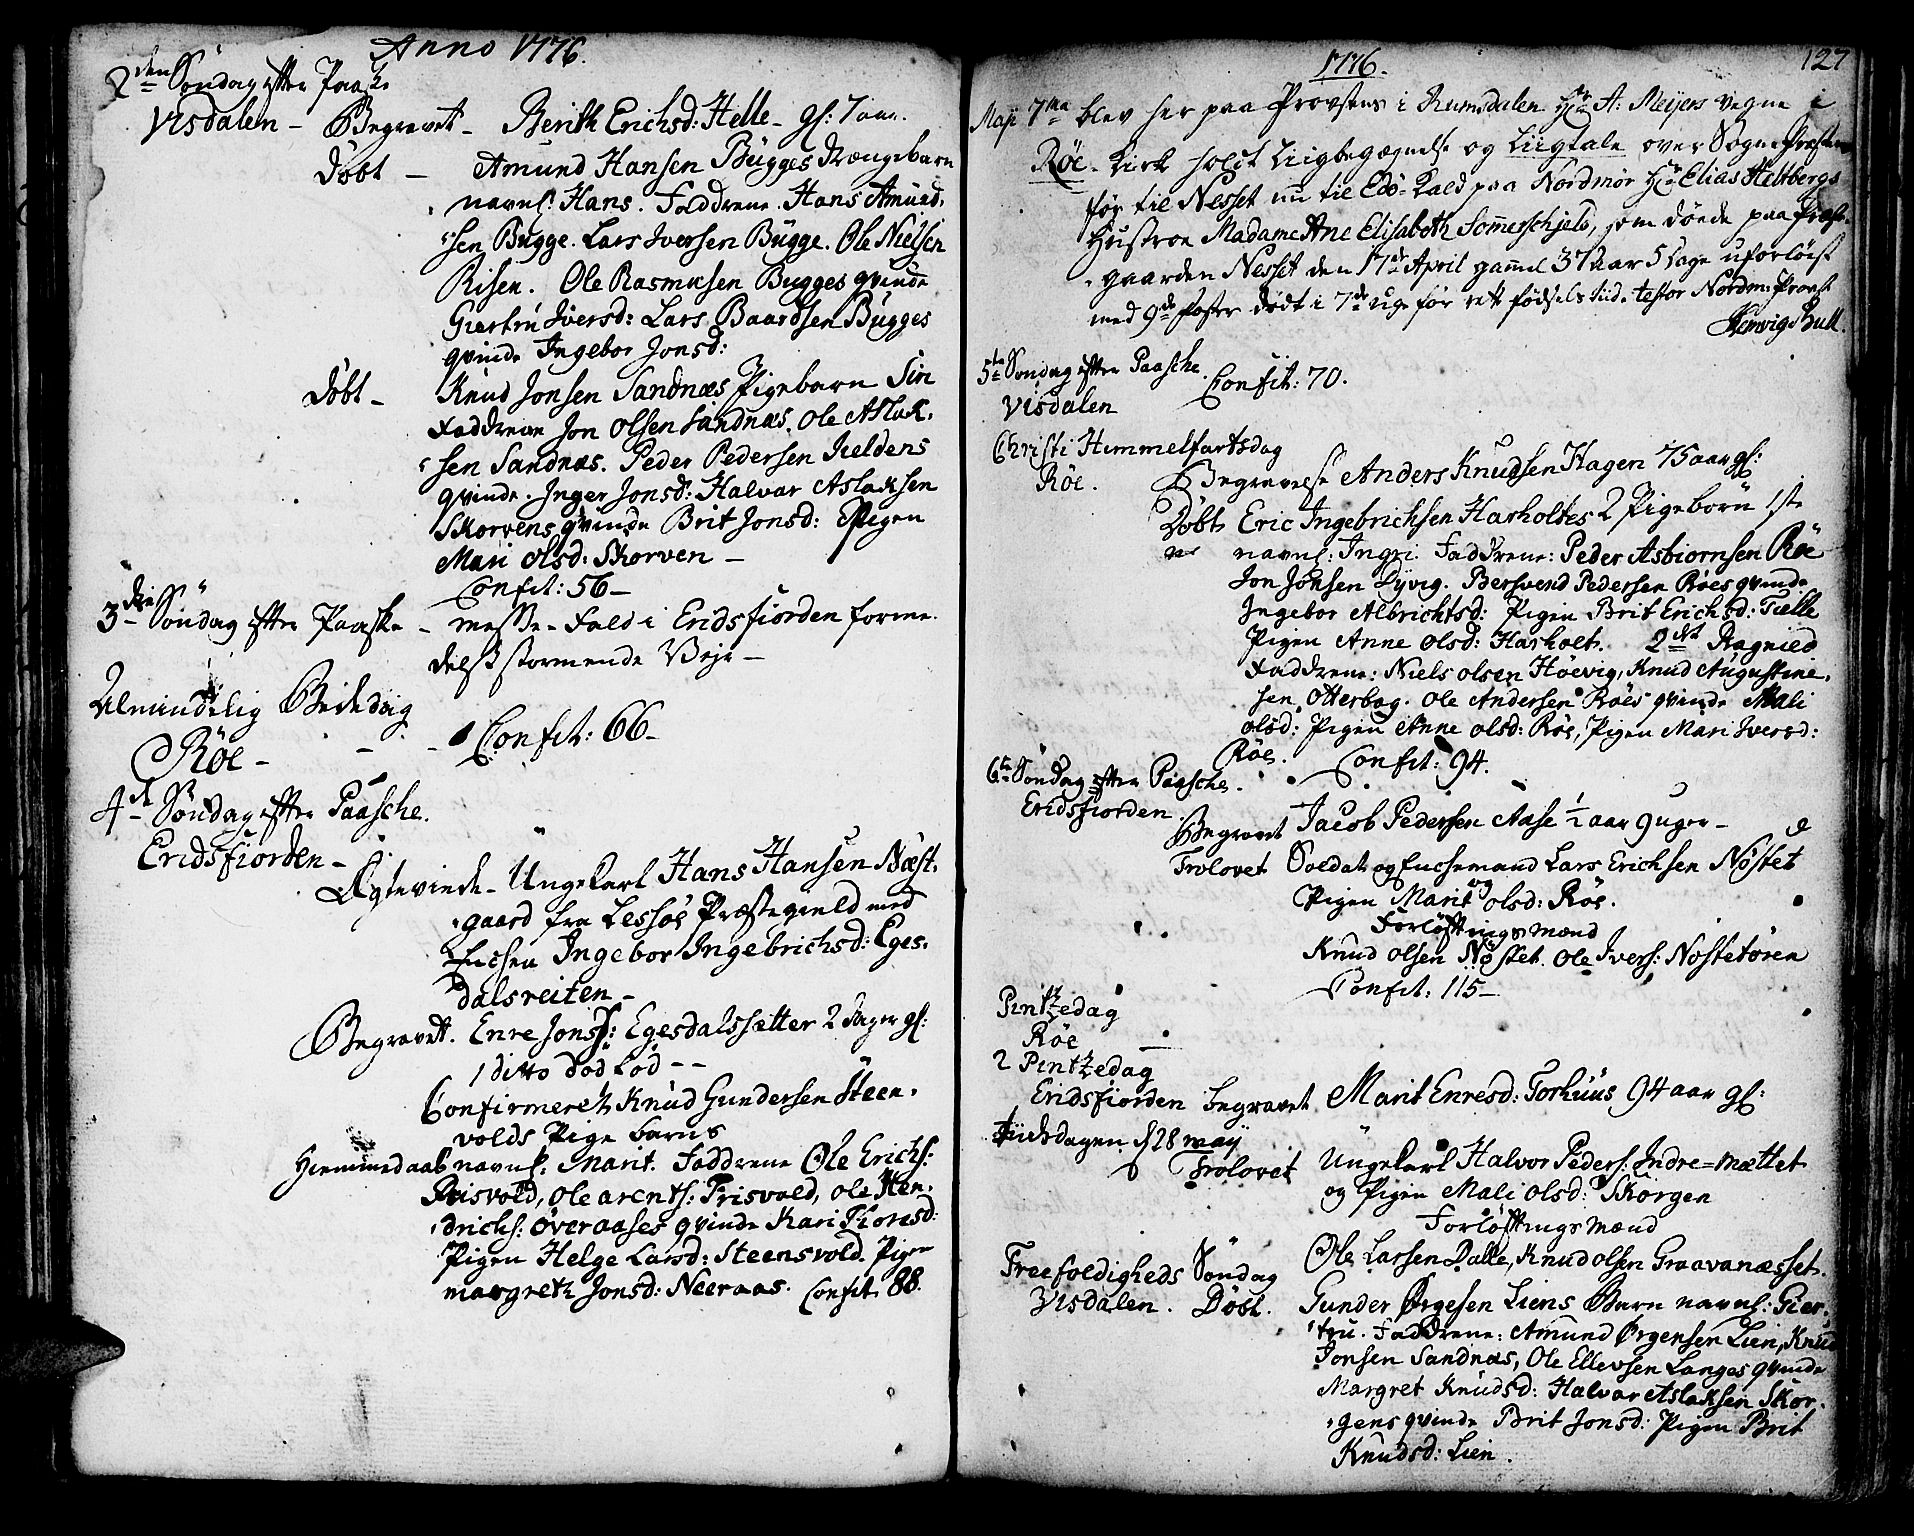 Anno 1776.
2den Søndag efter Paaske
Visdalen - Begravet - Berith Erichsd: Helle - gl: 7 aar.
Døbt - Amund Hansen Bügges drængebarn
navnl: Hans. Faddrene. Hans Amund-
sen Bugge. Lars Iversen Bügge. Ole Nielsen
Risen. Ole Rasmusen Bugges qvinde
Giertru Iversd: Lars Baardsen Bügges
qvinde Ingebor Jonsd:
Døbt - Knud Jonsen Sandnæs Pigebarn Siri
Faddrene Jon Olsen Sandnæs. Ole Aslak-
sen Sandnæs. Peder Pedersen Iieldens
qvinde. Inger Jonsd: Halvar Aslaksen
Skorvens qvinde Brit Jonsd: Pigen
Mari Olsd: Skorven -
Confit: 56 -
3die Søndag efter Paaske - Messe-Fald i Eridsfiorden forme-
delst stormende Vejr -
Almindelig Bededag
Røe - - - Confit: 66 -
4de Søndag efter Paasche.
Eridsfiorden -
Ægtevinde - Ungekarl Hans Hansen Næst-
gaard fra Lessøe Præstegield med
Enchen Ingebor Ingebrichsd: Eges-
dalsreiten -
Begravet. Enre Jons: Egesdalssætter 2 dager gl:
1 ditto død fød - -
Confirmeret Knud Gundersen Steen-
volds Pige barns
Hiemmedaab navnl: Marit. Faddrene Ole Erichs:
Frisvold, Ole Arents: Frisvold, Ole Hen-
drichs: Øveraases qvinde Kari Thoresd:
Pigen Helge Larsd: Steensvold. Pigen
Margreth Jonsd: Neeraas. Confit. 88.
1776. 127
Maji 7ma blev her paa Provstens i Rumsdalen Hr A: Meijers vegne i
Røe - Kirk holdt Liigbegængelse og Liigtale over Sogne Præsten
før til Nesset nu til Edø-Kald paa Nordmør Hr Elias Heltbergs
Hustroe Madame Ane Elisabeth Somerschield, som døde paa Præste-
gaarden Nesset den 17de April gaml 37 aar 5 dage uforløist
med 9de foster dødt i 7de uge før ret fødsels tiid. testor Nordm: Provst
Hervigs Bull
5te Søndag efter Paasche.
Visdalen Confit: 70.
Christi Himmelfartsdag
Røe. Begravelse Anders Knudsen Hagen 75 aar gl:
Døbt Eric Ingebrichsen Harholtes 2 Pigebørn 1ste
navnl: Ingri. Faddrene: Peder Asbiornsen Røe
Jon Jonsen Lyvig. Bersvend Pedersen Røes qvinde
Ingebor Albrichtsd: Pigen Brit Erichsd: Tielle
Pigen Anne Olsd: Harholt. 2det Ragnild
Faddrene: Niels Olsen Høevig, Knud Augustine-
sen Otterbog. Ole Andersen Røes qvinde Mali
Olsd: Pigen Anne Olsd: Røe, Pigen Mari Iversd:
Røe. Confit: 94.
6te Søndag efter Paasche.
Eridsfiorden.
Begravet Jacob Pedersen Aase 1/2 aar 9 uger -
Trolovet Soldat og Enchemand Lars Erichsen Nøstet
og Pigen Marit Olsd: Røe.
Forløftningsmænd
Knud Olsen Nøstet. Ole Ivers: Nøstetøren
Confit: 115 -
Pintzedag
Røe -
2 Pintzedag
Eridsfiorden Begravet Marit Enresd: Torhuus 94 aar gl:
Tiisdagen d 28 Maij
Trolovet Ungekarl Halvor Peders: Indre-Mættet
og Pigen Mali Olsd: Skorgen
Forløftnings Mænd
Ole Larsen Dalle, Knud Olsen Graavanæsset.
Treefoldigheds Søndag
Visdalen. Døbt. Gunder Ørgesen Liens Barn navnl: Gier-
tru. Faddrene: Amund Ørgensen Lien, Knud
Jonsen Sandnæs, Ole Ellevsen Langes qvinde
Margret Knudsd: Halvar Aslaksen Skor-
gens qvinde Brit Jonsd: Pigen Brit
Knudsd: Lien.